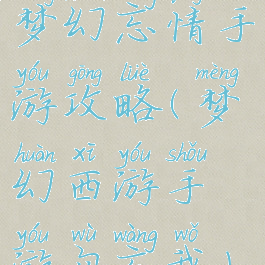 梦幻忘情手
yóu gōng lüè mèng
游攻略(梦
huàn xī yóu shǒu
幻西游手
yóu wù wàng wǒ
游勿忘我)